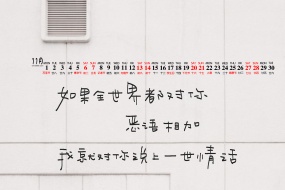 11月 1 2 3 4 5 6 7 8 9 10 11 12 13 14 15 16 17 18 19 20 21 22 23 24 25 26 27 28 29 30
如果全世界都对你
恶语相加
我就对你说上一世情话